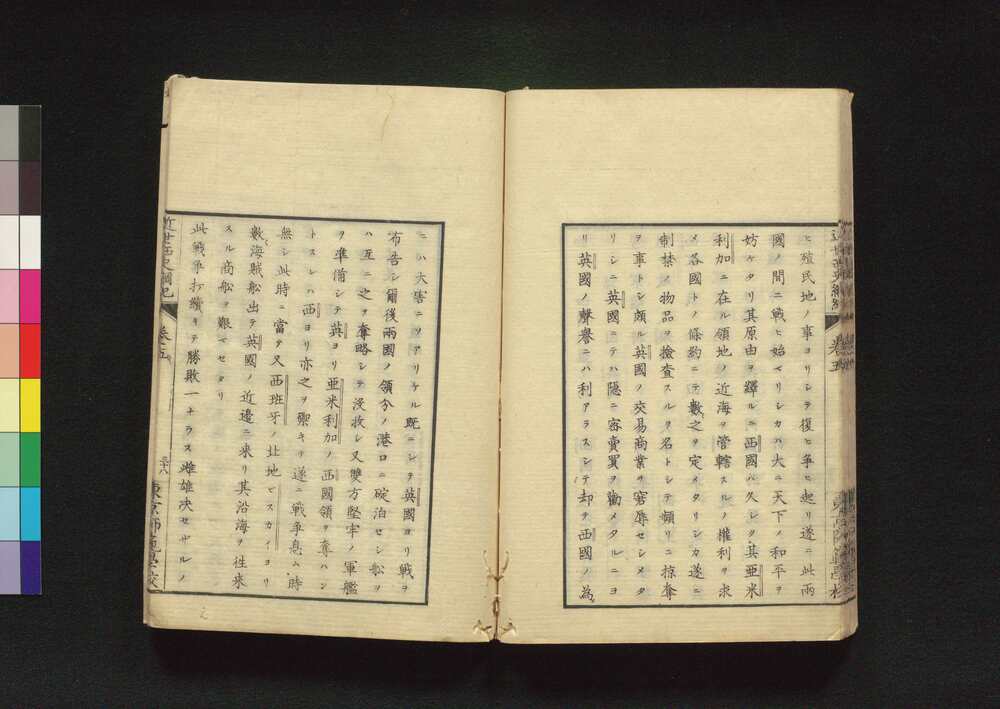 ヒ殖民地ノ事ヨリシテ復ヒ争ヒ起リ遂ニ此兩
國ノ間ニ戰ヒ始マリシカハ大ニ天下ノ和平ヲ
妨ケタリ其原由ヲ繹ルニ西國ハ久シク其亜米
利加ニ在ル領地ノ近海ヲ管轄スルノ權利ヲ求
メ各國トノ條約ニテ數之ヲ定メタリシカ遂ニ
制禁ノ物品ヲ檢査スルヲ名トシテ頻リニ掠奪
ヲ事トシ頗ル英國ノ交易商業ヲ窘辱セシメタ
リシニ英國ニテハ隠ニ密賣買ヲ勸メタルニヨ
リ英國ノ聲譽ニハ利アラスシテ却テ西國ノ為
ニハ大害ニソアリケル既ニシテ英國ヨリ戰ヲ
布告シ爾後兩國ノ領分ノ港口ニ碇泊セシ船ヲ
ハ互ニ之ヲ奪略シテ沒收シ又雙方堅牢ノ軍艦
ヲ準備シテ英ヨリ亜米利加ノ西國領ヲ奪ハン
トスレハ西ヨリ亦之ヲ禦キ遂ニ戰争息ム時
無シ此時ニ當テ又西班牙ノ北地ビスカイヨリ
數海賊船出テ英國ノ近邉ニ来リ其沿海ヲ往来
スル商船ヲ艱マセタリ
此戰争打續キテ勝敗一ナラス雌雄決セサルノ
近世西史綱紀
卷五
三十八
東京師範學校